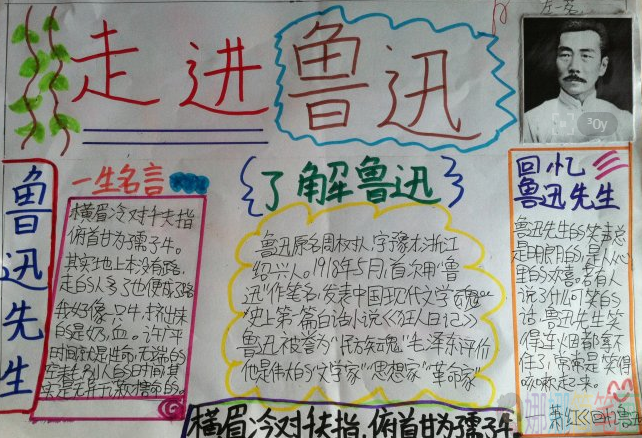 走进鲁迅
鲁迅先生
一生名言
横眉冷对千夫指
俯首甘为孺子牛。
其实地上本没有路,
走的人多了也便成了路
我好像一只牛,挤出来
的是奶,血。许广平
时间就是生命,无端的
空耗别人的时间,其
实是无异于谋财害命的。
了解鲁迅
鲁迅原名周树人,字豫才,浙江
绍兴人。1918年5月,首次用“鲁
迅”作笔名,发表中国现代文学
史上第一篇白话小说《狂人日记》
鲁迅被誉为“民族魂”毛泽东评价
他是伟大的“文学家”“思想家”“革命家”
回忆
鲁迅先生
鲁迅先生的笑声总
是明朗的,是从心
里的欢喜。若有人
说了什么可笑的
话,鲁迅先生笑
得连烟都拿不
住了,常常是笑得
咳嗽起来。
萧红《回忆鲁迅
横眉冷对千夫指,俯首甘为孺子牛
30y